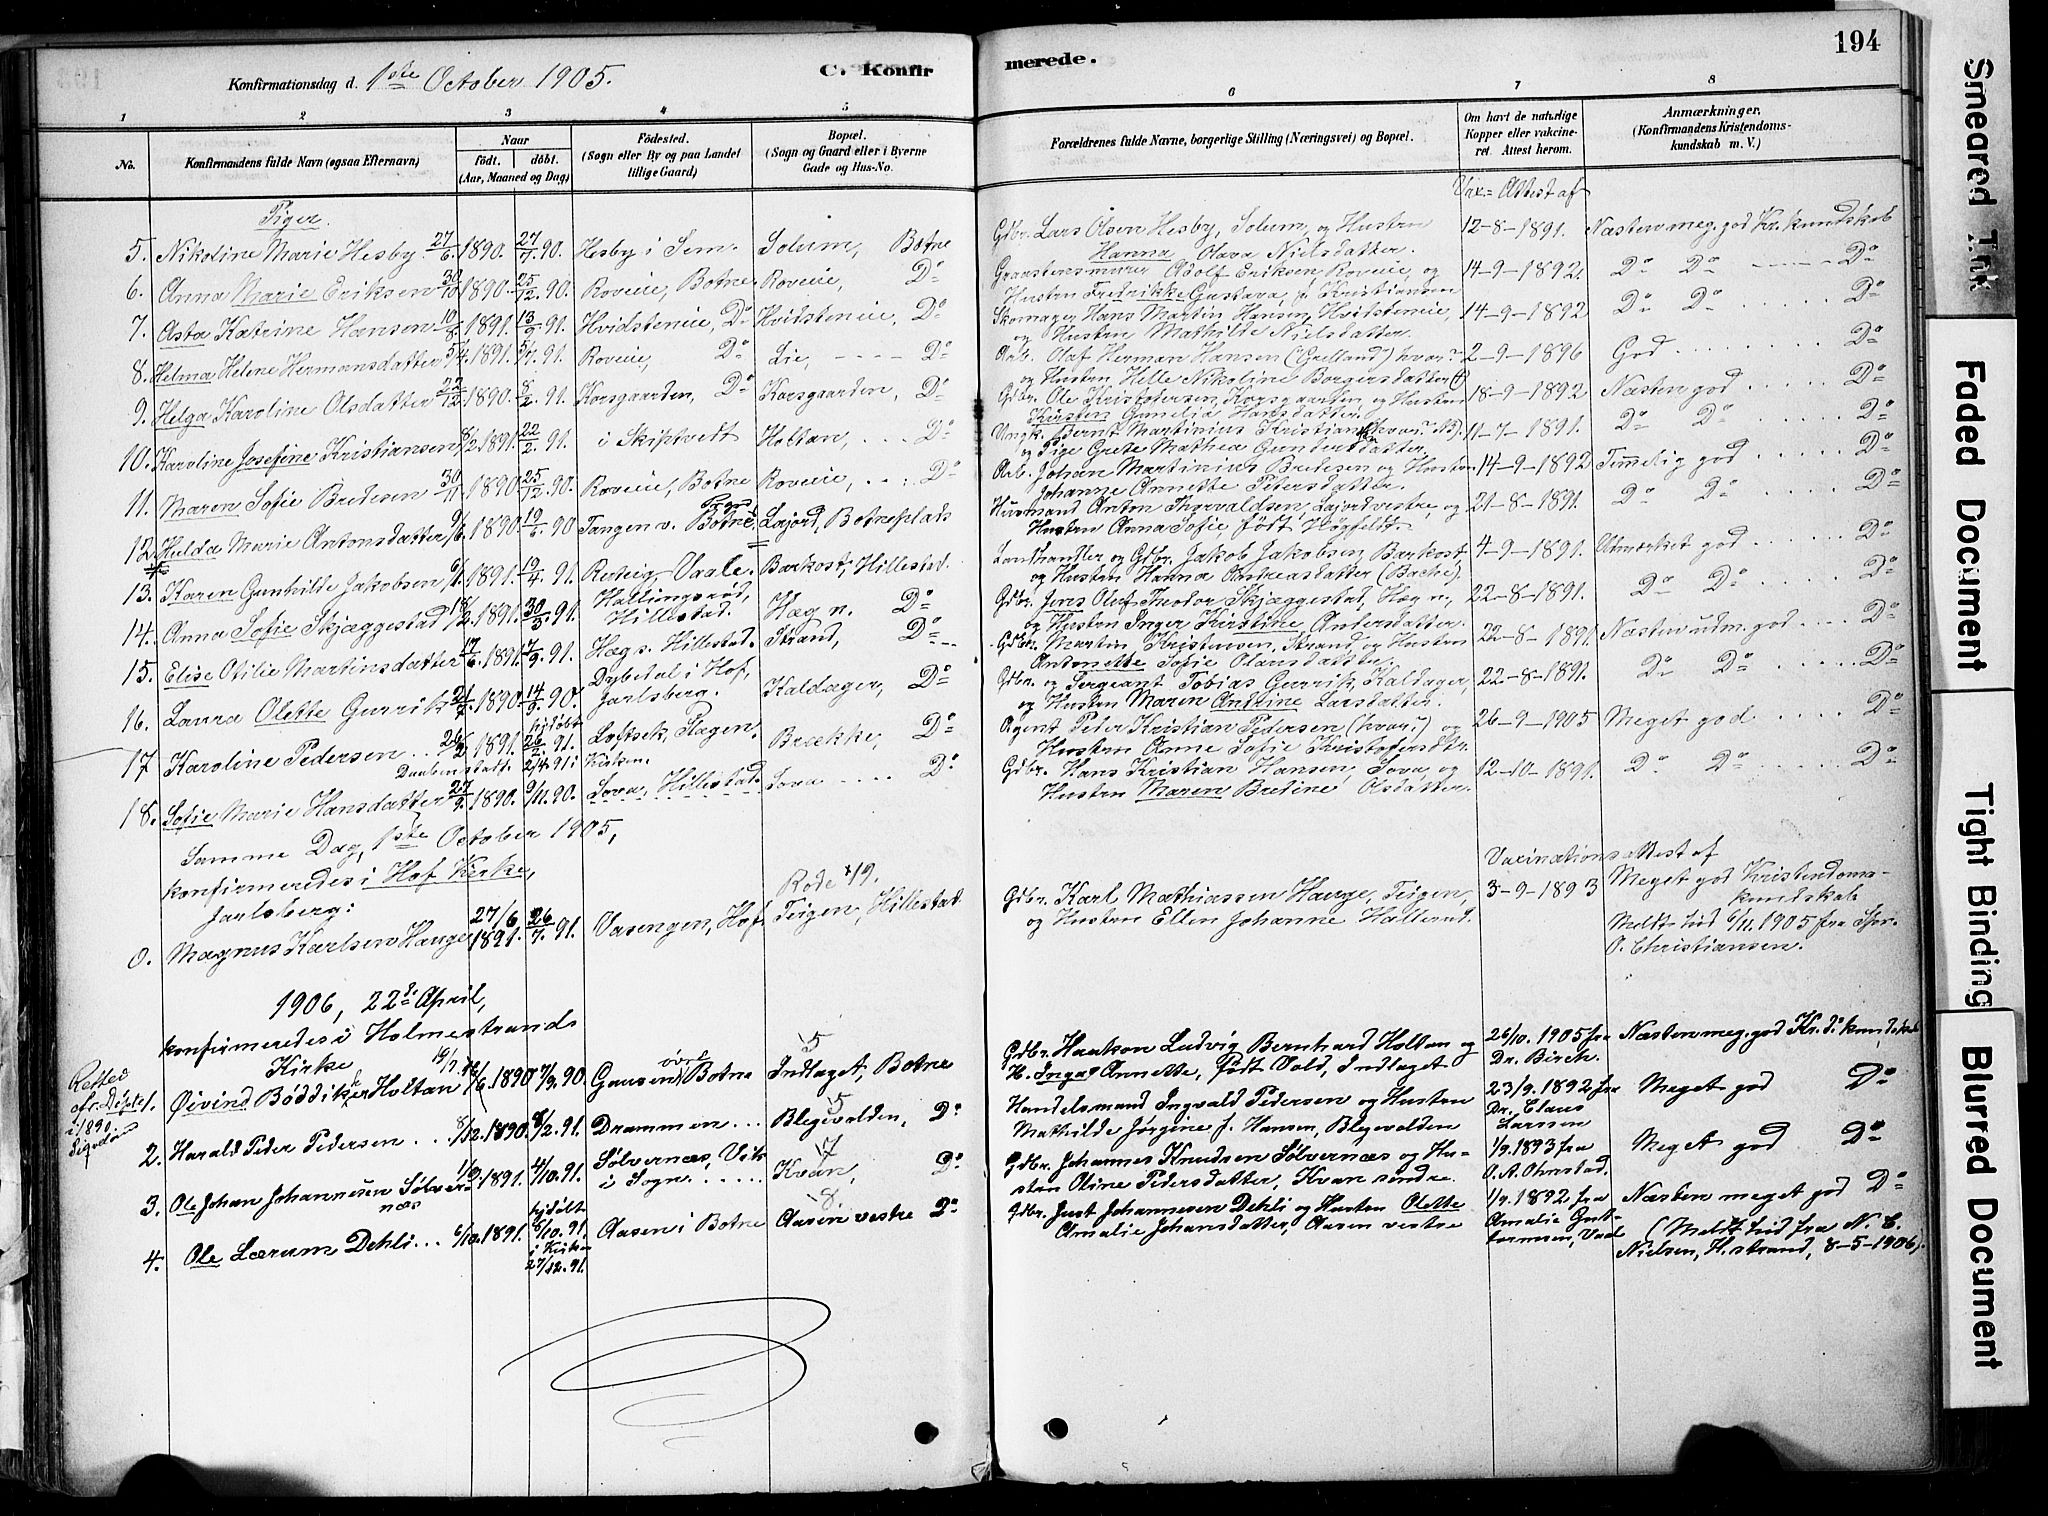 194
Konfirmationsdag d. 1ste October 1905. C. Konfirmerede.
1 2 3 4 5 6 7 8
No. Konfirmandens fulde Navn (ogsaa Efternavn) Naar født. døbt. (Aar, Maaned og Dag) Fødested. (Sogn eller By og paa Landet tillige Gaard) Bopæl. (Sogn og Gaard eller i Byerne Gade og Hus-No. Forældrenes fulde Navne, borgerlige Stilling (Næringsvei) og Bopæl. Om havt de naturlige Kopper eller vakcineret. Attest herom. Anmærkninger. (Konfirmandens Kristendomskundskab m. V.)
Piger. Vax.= Attest af
5. Nikoline Marie Hesby 27/6 1890. 27/7. 90. Hesby i Sem. Solum, Botne Gdbr. Lars Olsen Hesby, Solum, og Hustru 12-8-1891. Næsten meg. god Kr. kundskab
Hanna Olava Nielsdatter.
6. Anna Marie Eriksen 30/10 1890. 25/12. 90. Roveie, Botne Roveie, Do Graastensmurer Adolf Eriksen Roveie, og 14-9-1892. Do Do Do
Hustru Fredrikke Gustava, f. Kristiansen
7. Asta Katrine Hansen 1891. 13/9. 91. Hvidsteneie, Do Hvidsteneie, Do Skomager Hans Martin Hansen, Hvidsteneie, 14-9-1892 Do Do Do
og Hustru Mathilde Nielsdatter.
8. Helma Helene Hermansdatter 5/4. 1891. 91. Roveie, Do Lie, Do Arb. Olaf Herman Hansen (Grelland) hvor? 2-9-1896 God Do
og Hustru Helle Nikoline Borgersdatter (†)
9. Helga Karoline Olsdatter 22/12. 1890. 8/2. 91. Korsgaarden, Do Korsgaarden, Do Gdbr. Ole Kristofersen, Korsgaarden, og Hustru 18-9-1892 Næsten god Do
Kirsten Gunelia Hansdatter.
10. Karoline Josefine Kristiansen 8/2. 1891. 22/2. 91. i Skiptvedt Holtan, Do Ungk. Bernt Martinius Kristiansen (hvor? N.) 11-7-1891. Do Do Do
og Pige Grete Mathea Gundersdatter.
11. Maren Sofie Bredesen 30/11 1890. 25/12. 90. Roveie, Botne Roveie, Do Arb. Johan Martinius Bredesen og Hustru 14-9-1892 Temmelig god Do
Johanne Annette Petersdatter.
12. Hulda Marie Antonsdatter 1890. 19/ 90 Tangen v. Botne Lajord, Botneplads Husmand Anton Thorvaldsen, Lajord vestre, og 21-8-1891. Do Do Do
Hustru Anna Sofie, født Høgfeldt.
13. Karen Gunhilde Jakobsen 6/1. 1891. 19/4. 91. Vaale. Barkost, Hillestad. Landhandler og Gdbr. Jakob Jakobsen, Barkost, 4-9-1891. Udmærket god Do
og Hustru Hanna Andreasdatter (Bache).
14. Anna Sofie Skjæggestad 18/2. 1891. 30/3. 91. Hallingsrød, Hillestad. Hæg n. Do Gdbr. Jens Oluf Theodor Skjæggestad, Hæg n., 22-8-1891. Do Do Do
og Hustru Inger Kirstine Andersdatter.
15. Elise Otilie Martinsdatter 17/6. 1891. 91. Hæg s. Hillestad. Strand, Do Gdbr. Martin Kristensen, Strand, og Hustru 22-8-1891 Næsten udm. god Do
Antonette Sofie Olausdatter.
16. Laura Olette Gurrik 1890. 14/9. 90. Dybedal i Hof, Jarlsberg. Kaldager, Do Gdbr. og Sergeant Tobias Gurrik, Kaldager, 22-8-1891. Do Do Do
og Hustru Maren Andrine Larsdatter.
17 Karoline Pedersen 26/2 1891. hjdøbt 26/2. 91. Slagen. Brække, Do Agent Peter Kristian Pedersen (hvor?) og 26-9-1905 Meget god Do
Daabsattest. 2/4. 91 i Kirken. Hustru Anne Sofie Kristofersdtr.
18. Sofie Marie Hansdatter 27/9. 1890. 9/11. 90. Sova, Hillestad. Sova Do Gdbr. Hans Kristian Hansen, Sova, og 12-10-1891. Do Do Do
Hustru Maren Bredine Olsdatter.
Samme Dag, 1ste October 1905,
konfirmeredes i Hof Kirke,
Jarlsberg: Rode 19. Vaxinationsattest af
0. Magnus Karlsen Hauge 27/6 1891. 26/7. 91. Vasengen, Hof. Teigen, Hillestad. Gdbr. Karl Mathiassen Hauge, Teigen, 3-9-1893 Meget god Kristendomskundskab
og Hustru Ellen Johanne Hallesd. Meldt hid 6/11. 1905 fra Spr. O. Christiansen.
1906, 22de April,
konfirmeredes i Holmestrands
Kirke
Rettet efr. Døpte i 1890
1. Øivind Böddiker Holtan 1890 7/9. 90. Gausen øvre Botne 5 Indlaget, Botne Gdbr. Haakon Ludvig Bernhard Holtan og 26/10. 1905 fra Dr. Birch. Næsten meg. god Kr.ds kundskab
H. Inga Annette, født Vold, Indlaget
2. Harald Peder Pedersen 8/12. 1890. 8/2. 91. Drammen 5 Blegevolden, Do Handelsmand Ingvald Pedersen og Hustru 23/9. 1892 fra Dr. Claus Larssen Meget god Do
Mathilde Jørgine f. Hansen, Blegevolden
3. Ole Johan Johannesen Sølvernæs 1891. 4/10. 91. Sølvernæs, Vik i Sogn 7 Kvan, Do Gdbr. Johannes Knudsen Sølvernæs og Hustru 1/9. 1893 fra O. A. Ohnstad. Meget god Do
Oline Pedersdatter, Kvan søndre.
4. Ole Lærum Dehli 6/10. 1891. hjdøbt 8/10. 91. i Kirken 27/12. 91. Aasen i Botne 8. Aasen vestre Do Gdbr. Just Johannesen Dehli og Hustru Olette 1/9. 1892 fra Amalie Guttormsen, Vaale Næsten meget god Do
Amalie Johansdatter, Aasen vestre (Meldt hid fra N. C. Nielsen, H.strand, 8-5-1906).
Smeared Ink
Faded Document
Tight Binding
Blurred Document